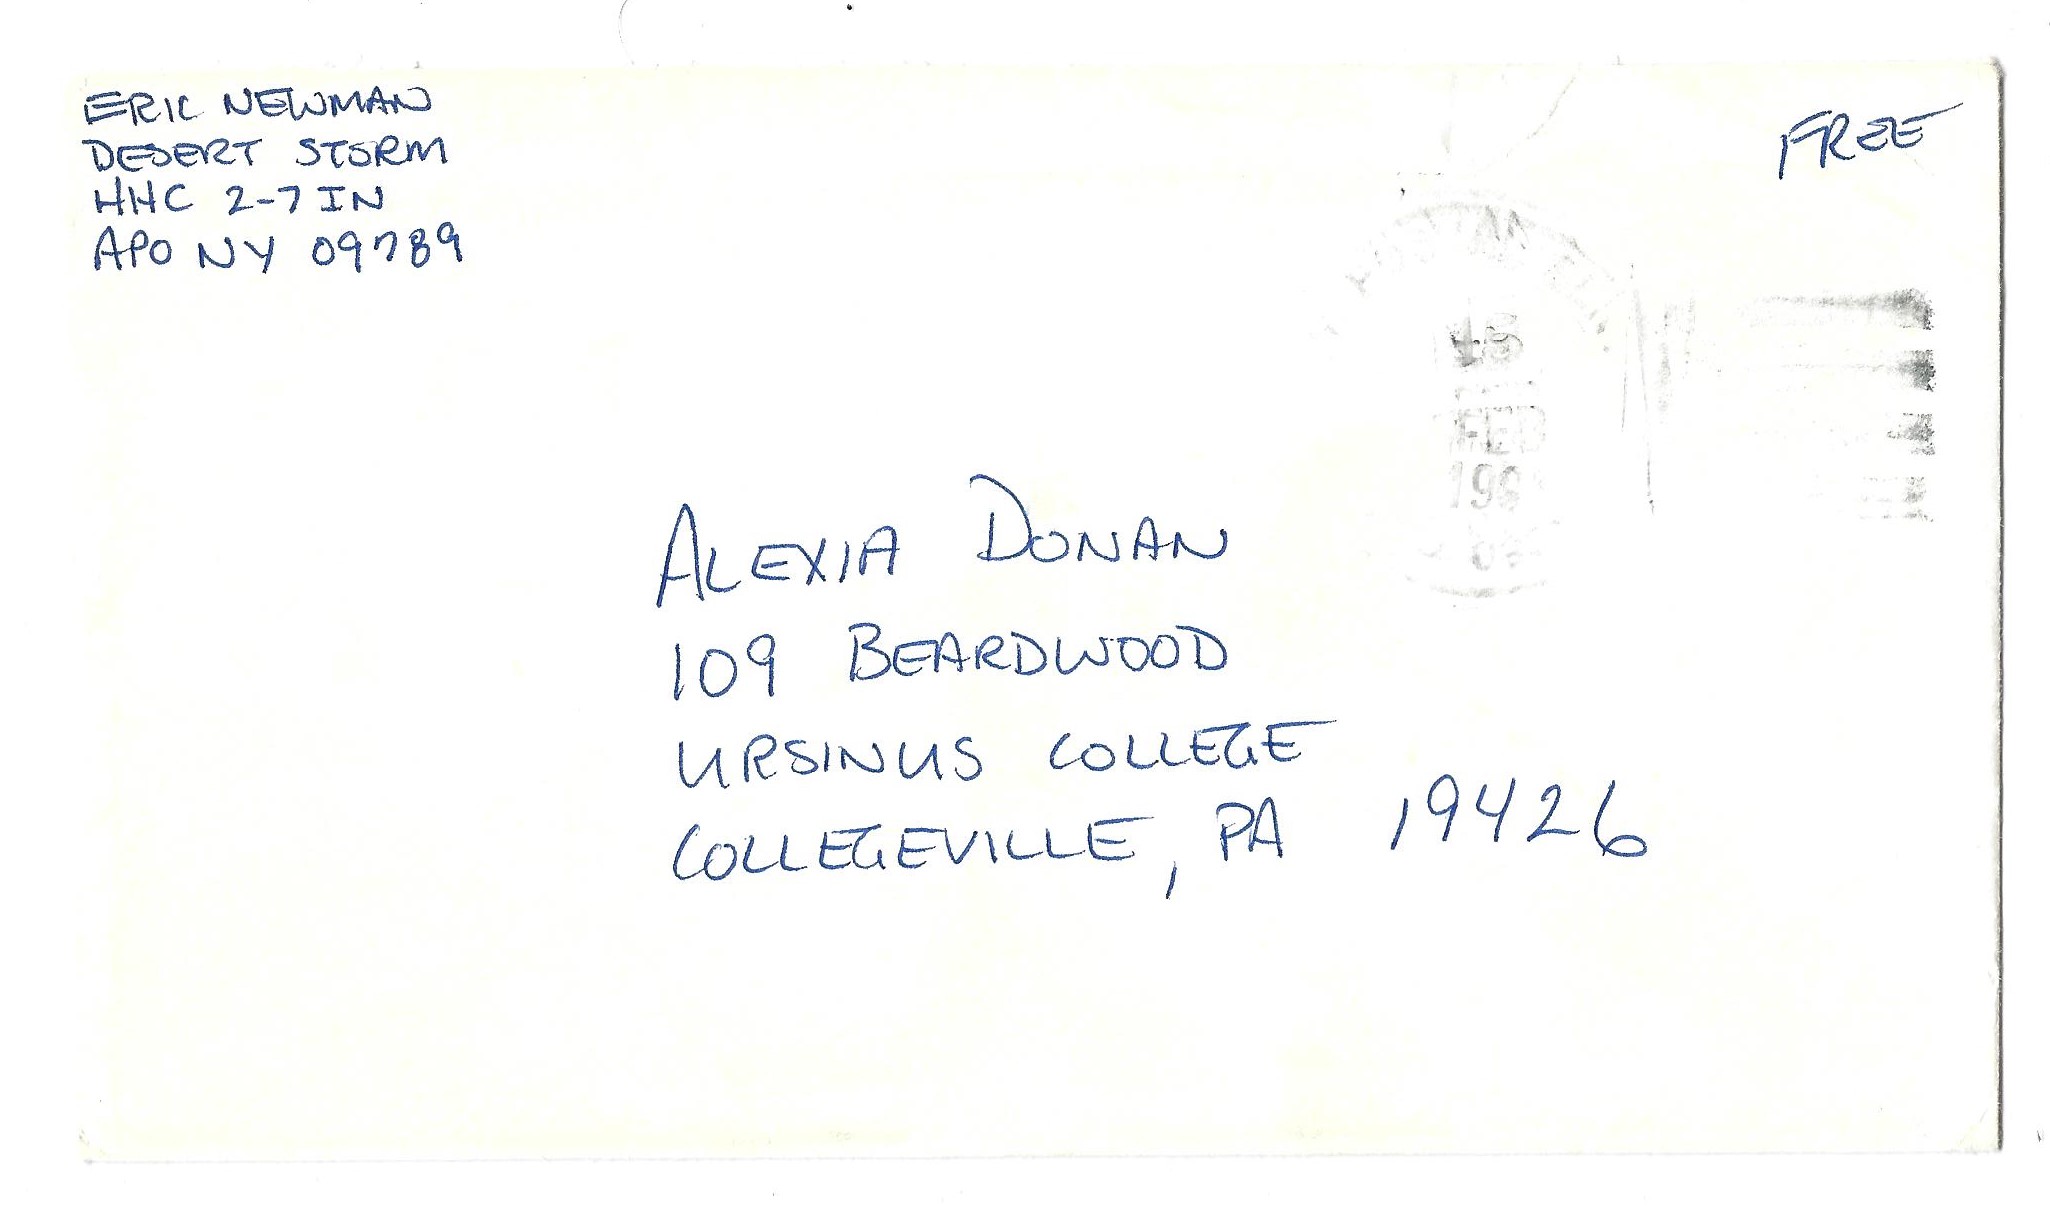 ERIC NEWMAN
DESERT STORM
HHC 2-7 IN
APO NY 09789
FREE
FEB
ALEXIA DONAN
109 BEARDWOOD
URSINUS COLLEGE
COLLEGEVILLE, PA 19426